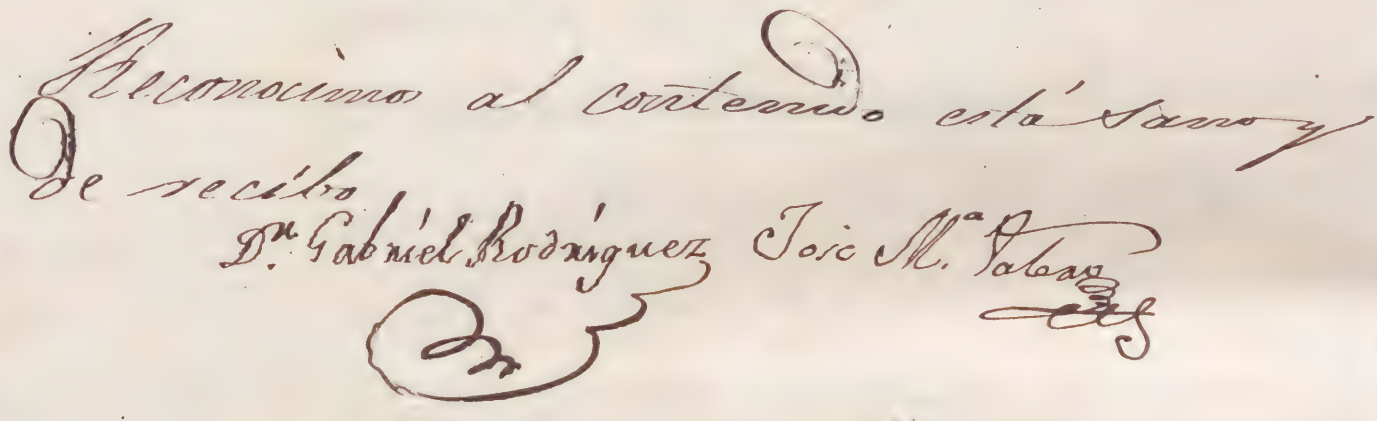 Reconocimos al contenido está sano y
de recibo
Dn. Gabriel Rodriguez José M.a